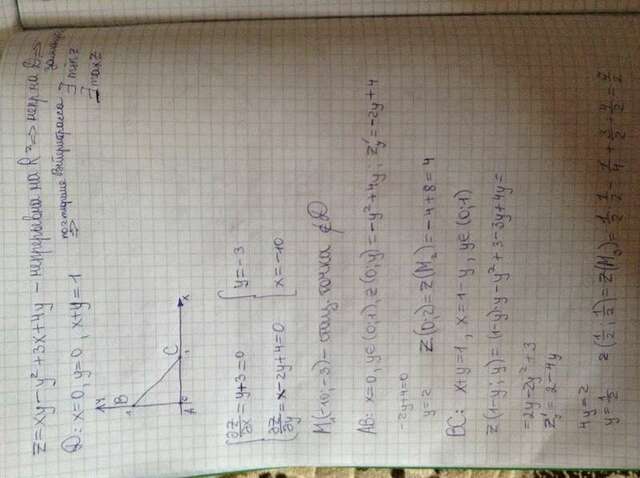 z=xy-y²+3x+4y - непрерывна на R² ⇒ непр на D ⇒
замкнут
D: x=0, y=0, x+y=1 по теореме Вейерштрасса ⇒ ∃ min z
∃ max z
y
1 B
A 0 C 1 x
∂z/∂x = y+3=0 y=-3
∂z/∂y = x-2y+4=0 x=-10
M₁(-10;-3) - стац. точка ∉ D
AB: x=0, y∈(0;1), z(0;y)=-y²+4y; z'y=-2y+4
-2y+4=0
y=2 z(0;2)=z(M₂)=-4+8=4
BC: x+y=1, x=1-y, y∈(0;1)
z(1-y;y)=(1-y)·y-y²+3-3y+4y=
=2y-2y²+3
z'y=2-4y
4y=2
y=1/2 z(1/2;1/2)=z(M₃)=1/2·1/2-1/4+3/2+4/2=7/2